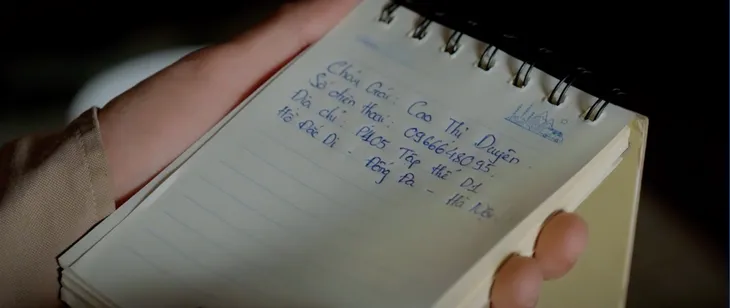 Cháu Gái: Cao Thị Duyên
Số điện thoại: 0966648095
Địa chỉ: P405 Tập thể D1
Hồ Đắc Di - Đống Đa - Hà Nội